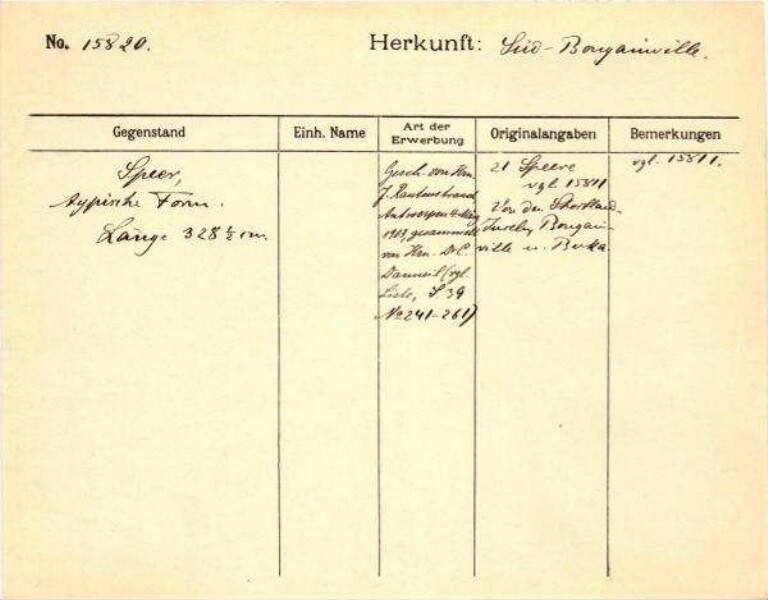 No. 15820.
Herkunft: Süd-Bougainville.
Gegenstand
Einh. Name
Art der Erwerbung
Originalangaben
Bemerkungen
Speer,
typische Form.
Länge 328 ½ cm.
Gesch. von Hrn.
J. Rautenstrauch
Antwerpen
gesammelt
von Hrn. Dr C.
(vgl.
Liste, S. 39
No 241-261)
21 Speere
vgl. 15811
Von den Shortland-
Inseln, Bougain-
ville u. Buka.
vgl. 15811.